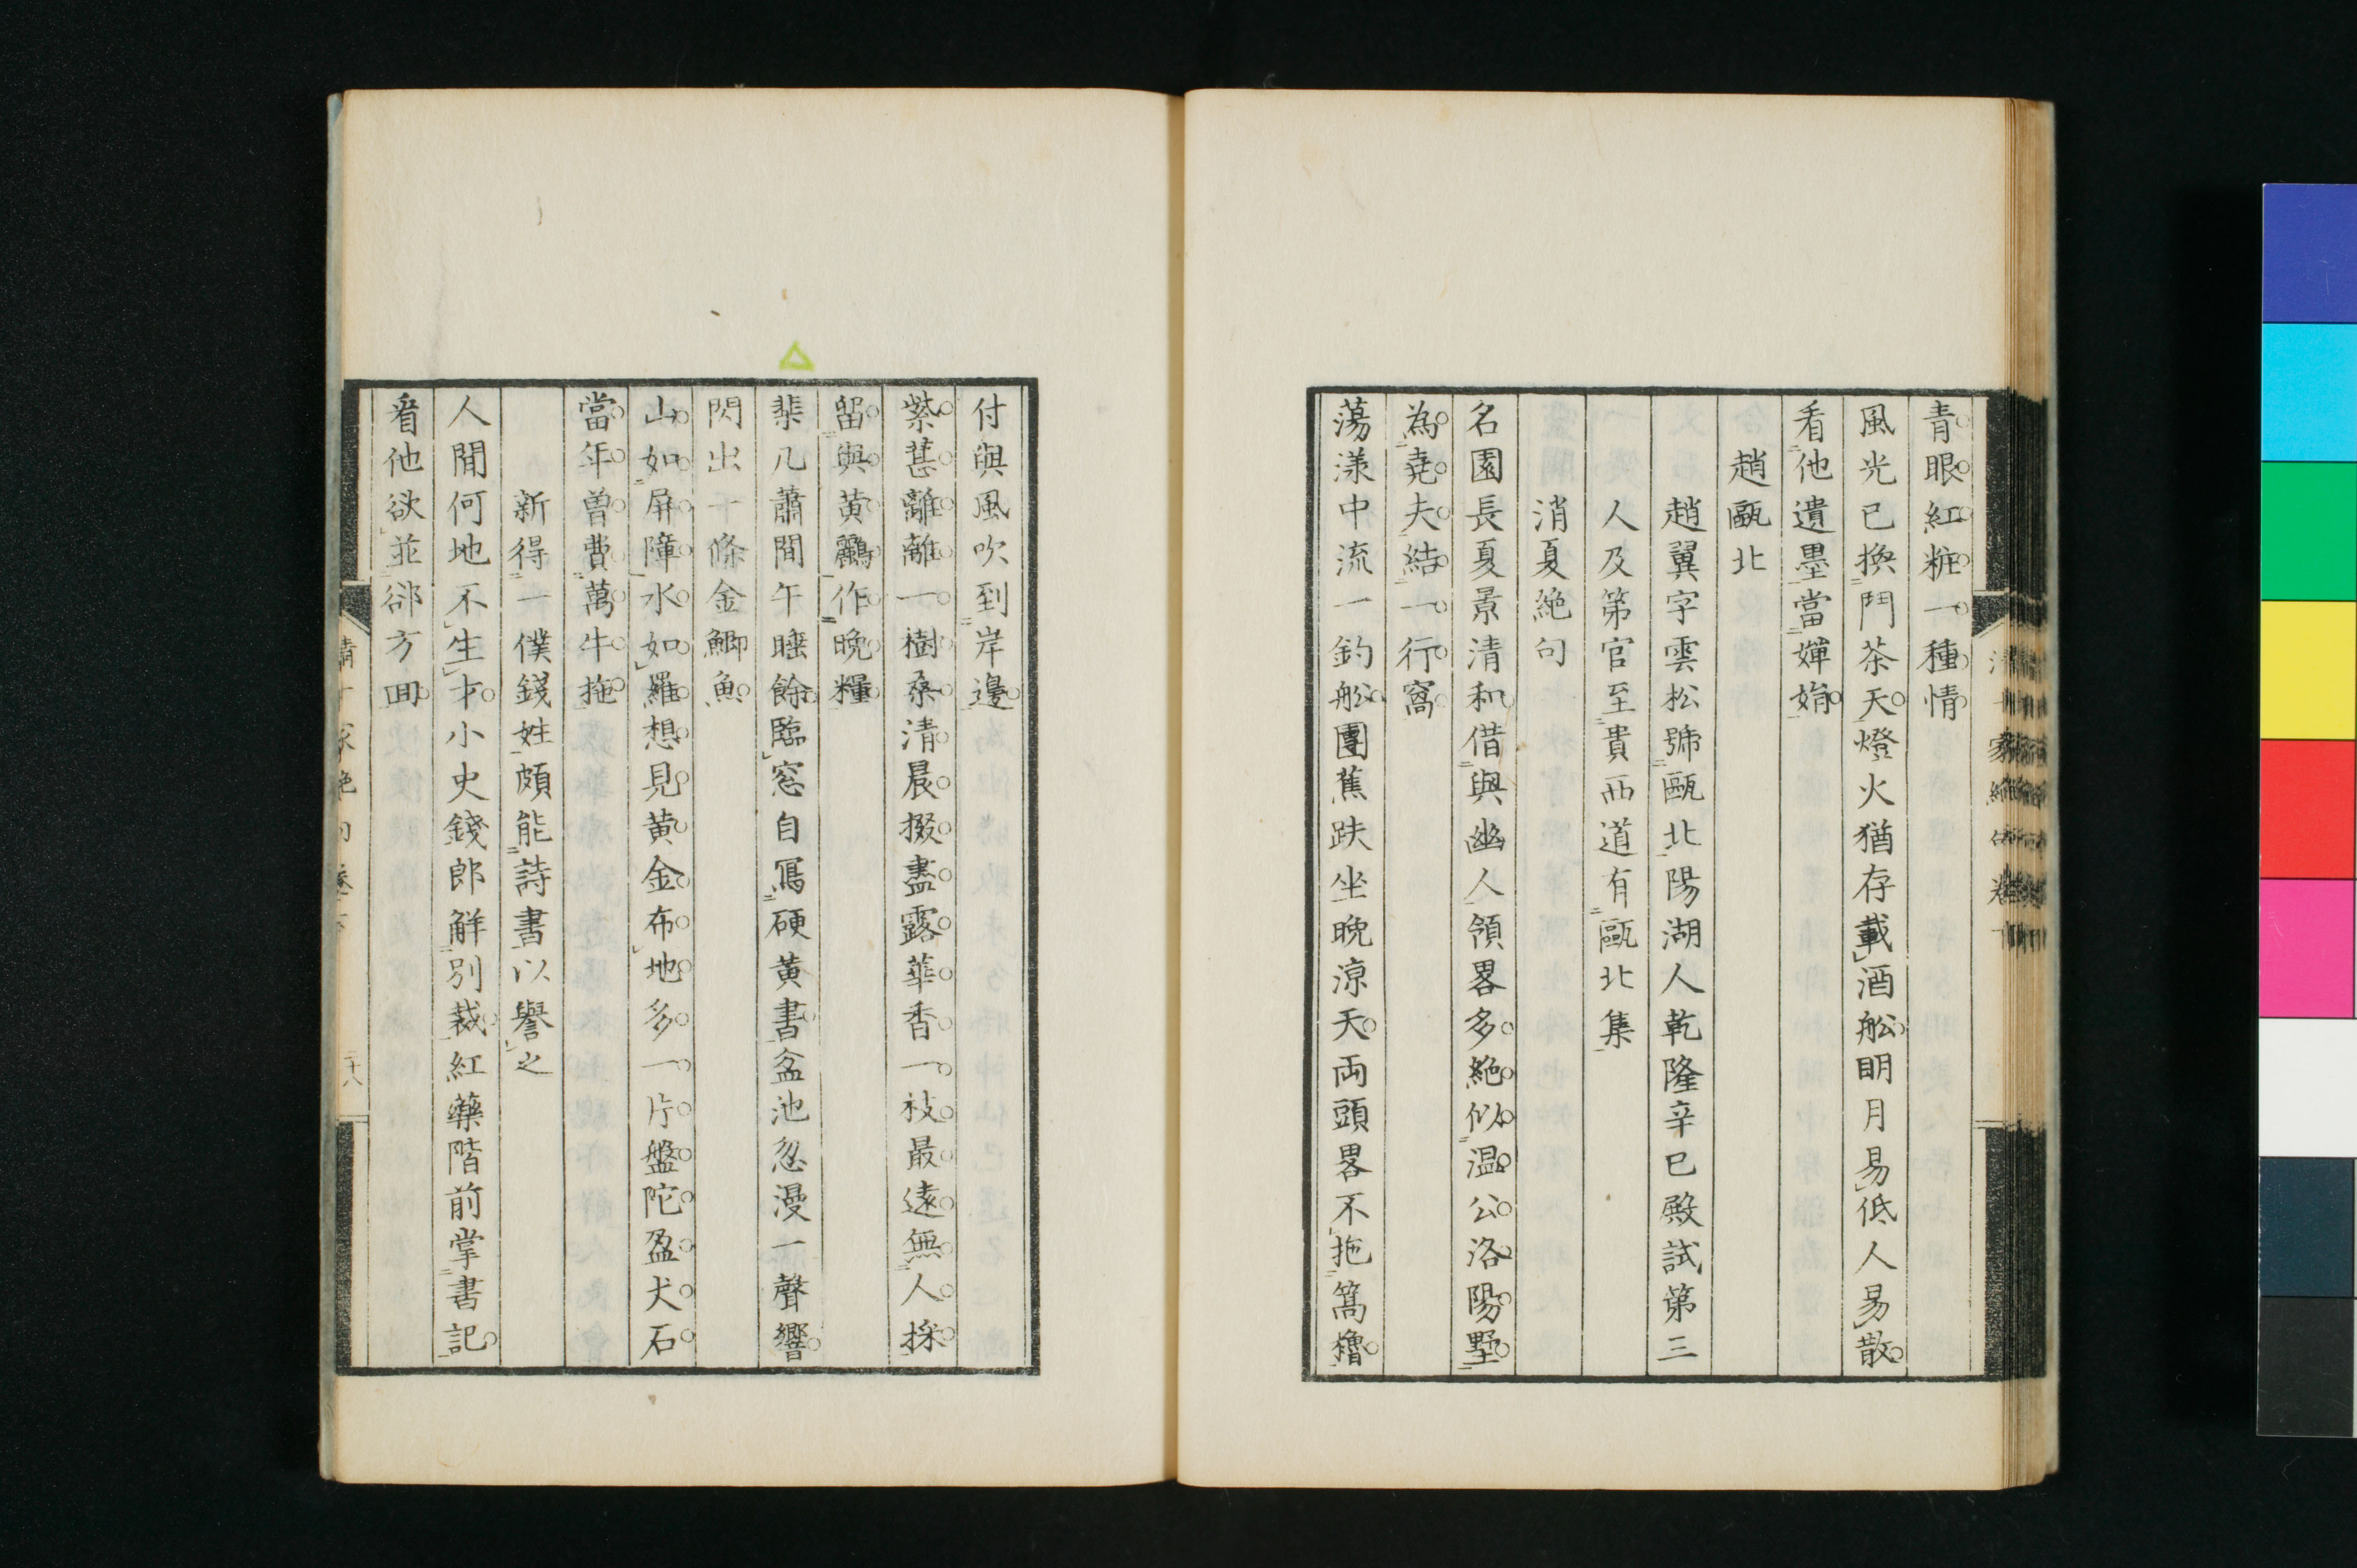 青眼紅粧一種情
風光已換鬥茶天燈火猶存載酒舩明月易低人易散
看他遺墨當嬋娟
趙甌北
趙翼字雲松號甌北陽湖人乾隆辛巳殿試第三
人及第官至貴西道有甌北集
消夏絶句
名園長夏景清和借與幽人領畧多絶似温公洛陽墅
為堯夫結一行窩
蕩漾中流一釣舩團蕉趺坐晩涼天両頭畧不拖篙櫓
付與風吹到岸邊
紫葚離離一樹桑清晨掇盡露華香一枝最遠無人採
留與黄鸝作晩糧
棐几蕭閒午睡餘臨窓自寫硬黄書盆池忽漫一聲響
閃出一條金鯽魚
山如屏障水如羅想見黄金布地多一片盤陀盈丈石
當年曽費萬牛拖
新得一僕錢姓頗能詩書以譽之
人間何地不生才小史錢郎解別裁紅藥階前掌書記
看他欲並郤方回
清十家絶句卷下
二十八